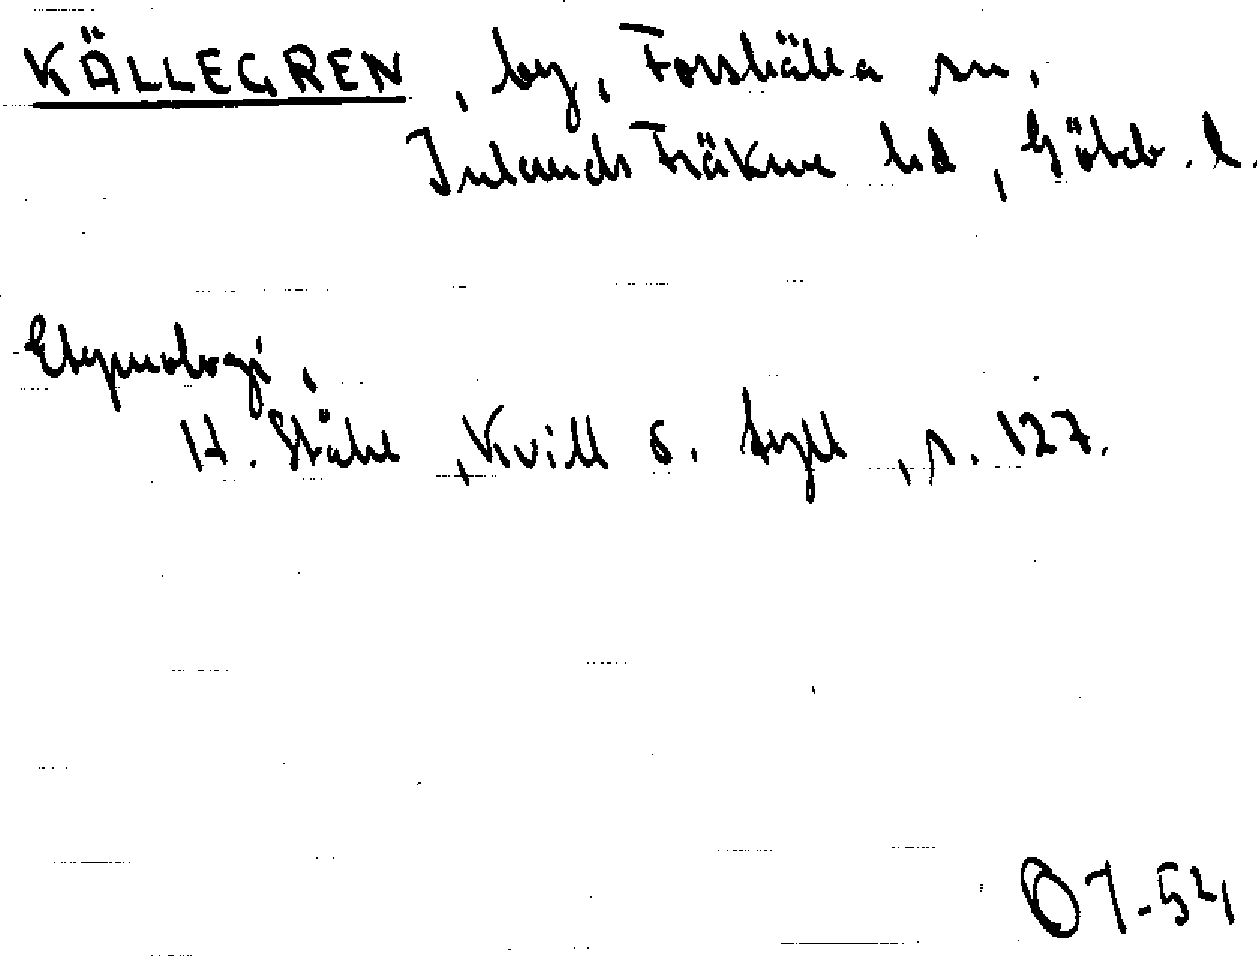 KÄLLEGREN, by, Forshälla sn,
Inlands Fräkne hd, Göteb. l.
Etymologi,
H. Ståhl, Kvill o. tyll, s. 127.